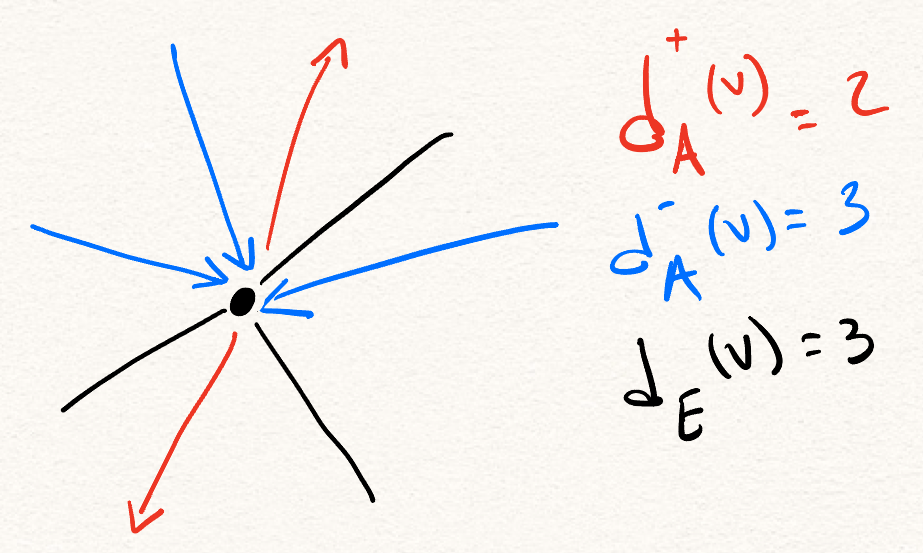 d⁺_A(v) = 2
d⁻_A(v) = 3
d_E(v) = 3